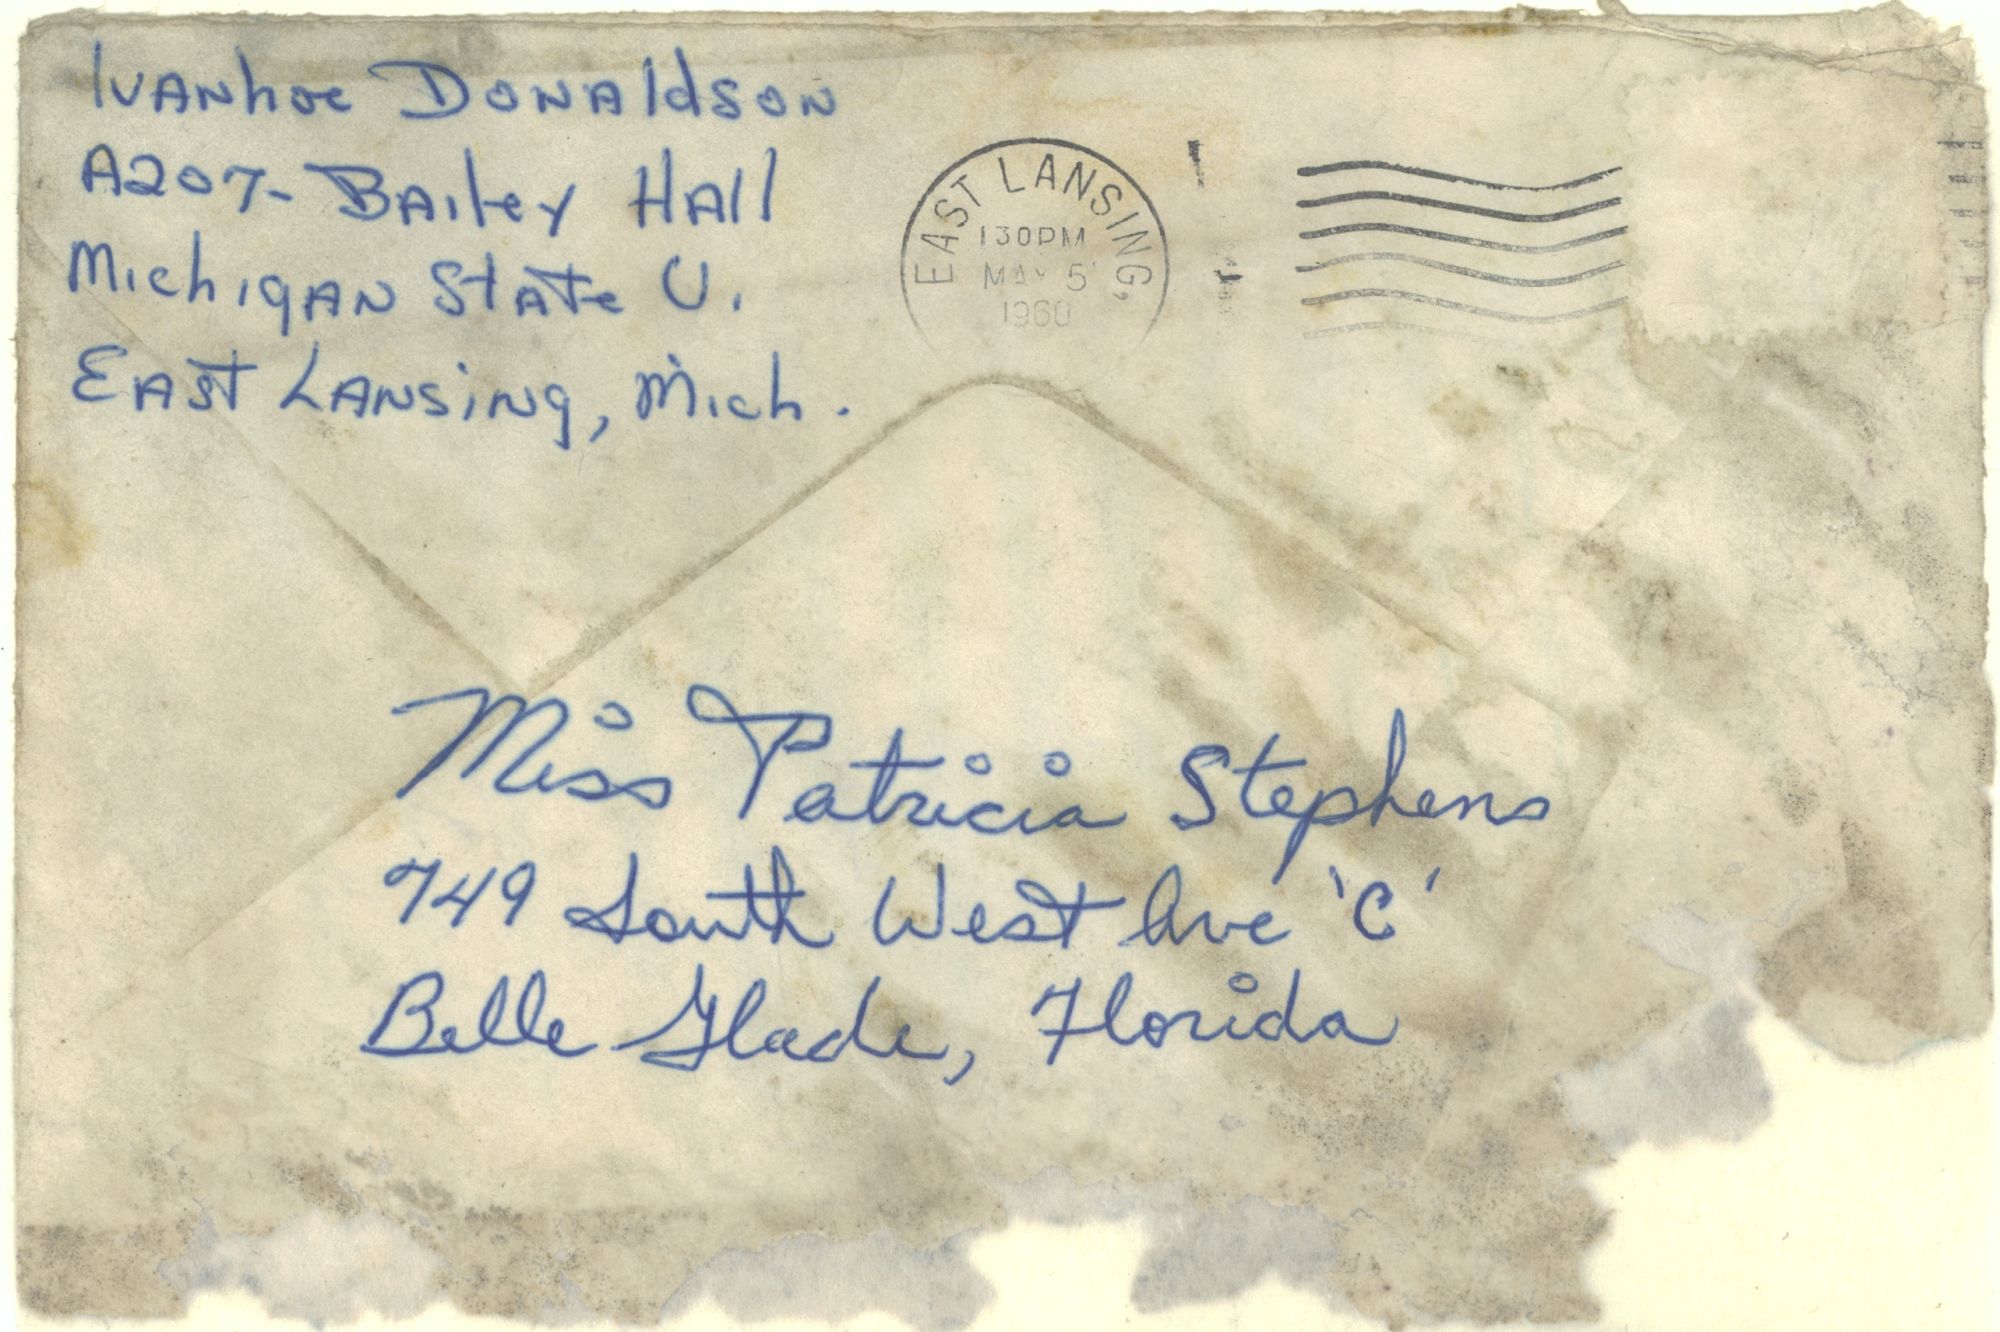 Ivanhoe Donaldson
A207- Bailey Hall
Michigan State U.
East Lansing, Mich.
EAST LANSING,
130PM
MAY 5
1960
Miss Patricia Stephens
749 South West Ave 'C'
Belle Glade, Florida